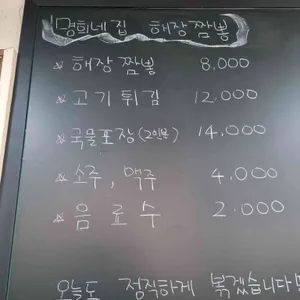 명희네 집 해장 짬뽕
※ 해장 짬뽕 8,000
※ 고기 튀김 12.000
※ 국물포장(2인분) 14,000
※ 소주, 맥주 4,000
※ 음료수 2.000
오늘도 정직하게 볶겠습니다!